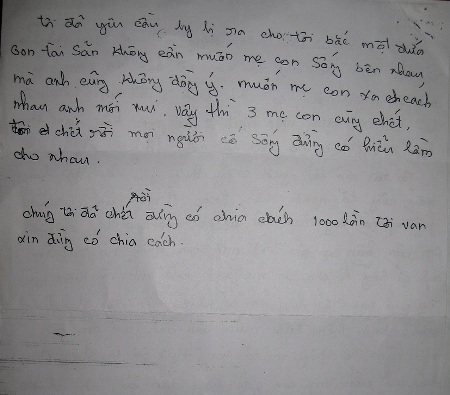 tôi đã yêu cầu ly hị ra cho tôi bắc một đứa
con tài sản không cần muốn mẹ con sống bên nhau
mà anh cũng không đồng ý. muốn mẹ con xa cách
nhau anh mới vui. vậy thì 3 mẹ con cùng chết.
chết rồi mọi người cố sống đừng có hiểu lầm
cho nhau.
chúng tôi đã chết rồi đừng có chia cách 1000 lần tôi van
xin đừng có chia cách.